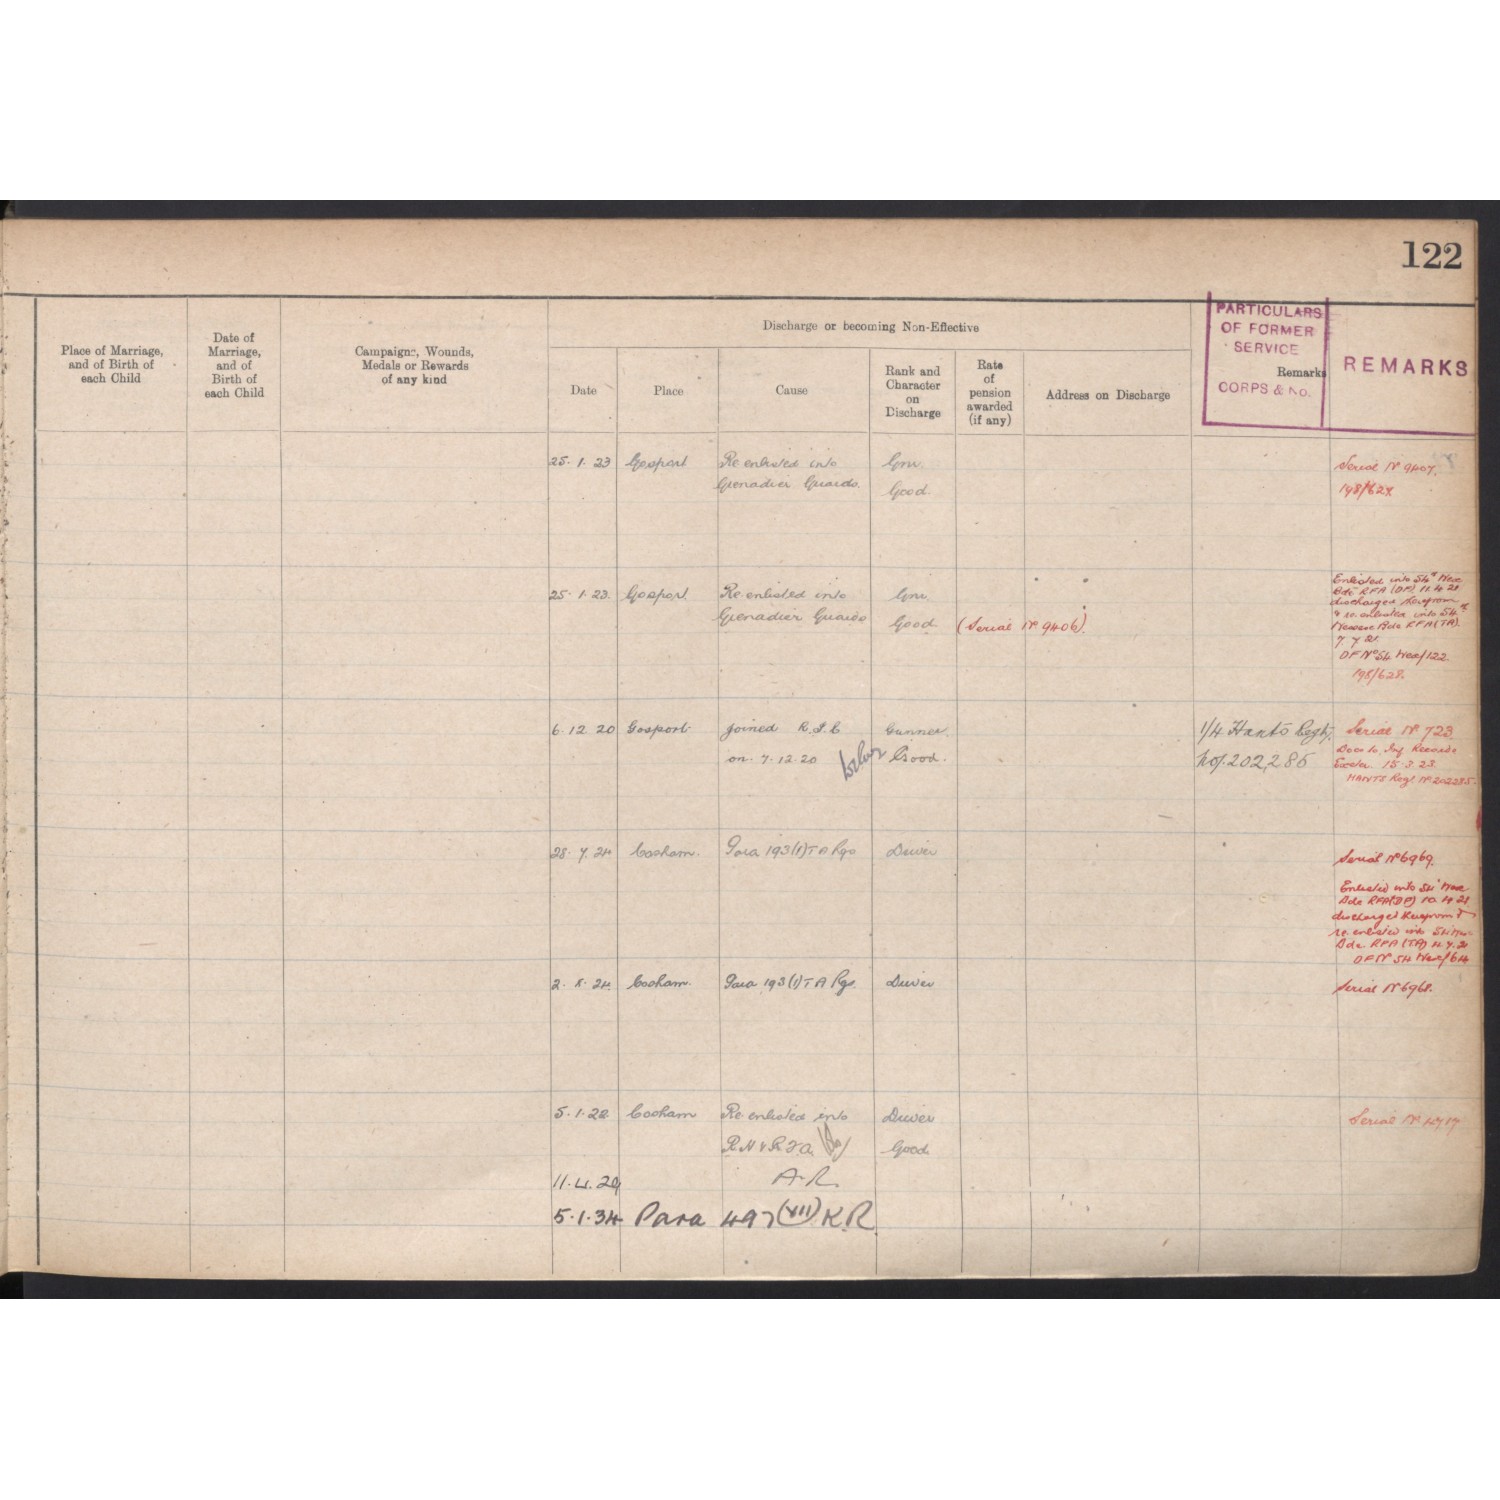 122
Place of Marriage,
and of Birth of
each Child
Date of
Marriage,
and of
Birth of
each Child
Campaigns, Wounds,
Medals or Rewards
of any kind
Discharge or becoming Non-Effective
Date
Place
Cause
Rank and
Character
on
Discharge
Rate
of
pension
awarded
(if any)
Address on Discharge
Remarks
PARTICULARS
OF FORMER
SERVICE
CORPS & No.
REMARKS
25.1.23 Gosport Re enlisted into Gnr. Serial No 9407.
Grenadier Guards. Good. 198/627.
25.1.23. Gosport Re enlisted into Gnr.
Grenadier Guards Good (Serial No 9406).
Enlisted into 54th Wex
Bde RFA (DF) 11.4.21
discharged therefrom
& re. enlisted into 54th
Wessex Bde RFA (TA)
7 7 21
DF No 54 Wex/122.
198/628.
6.12.20 Gosport joined R.I.C Gunner. 1/4 Hants Regt. Serial No 723
on. 7.12.20 Good. No. 202,285
Docs to Inf Records
Exeter 15.3.23.
HANTS Regt No 202285.
28.7.24 Cosham. Para 193(1) TA Rgs Driver Serial No 6969.
Enlisted into 54 Wex
Bde RFA (DF) 10.4.21
discharged therefrom &
re. enlisted into 54 Wex
Bde RFA (TA) 4.7.21
DF No 54 Wex/64
2.8.24. Cosham. Para 193(1) TA Rgs. Driver Serial No 6968.
5.1.22 Cosham Re enlisted into Driver Serial No 4717
R.H & R.F.A. Good
11.4.29 A.R.
5.1.34 Para 497 (VII) K.R.